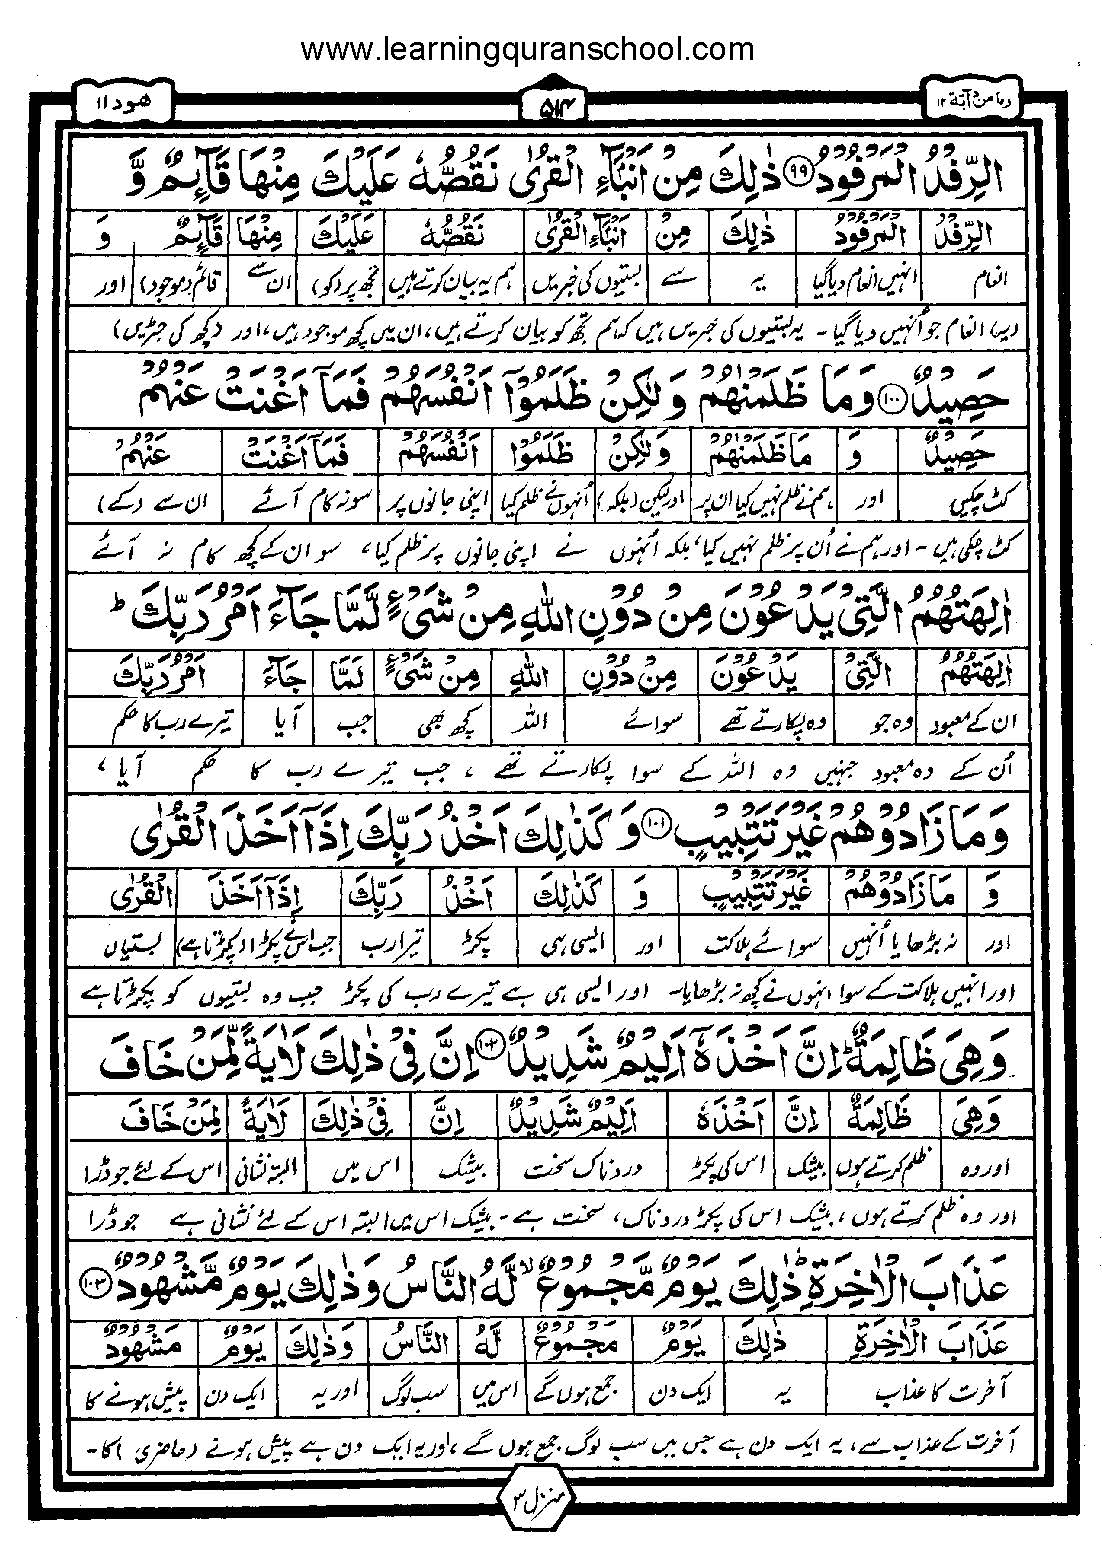 www.learningquranschool.com
وما من دآبة ۱۲
۵۱۴
هود ۱۱
الرِّفْدُ الْمَرْفُوْدُ ۹۹ ذٰلِكَ مِنْ اَنْۢبَآءِ الْقُرٰى نَقُصُّهٗ عَلَيْكَ مِنْهَا قَآئِمٌ وَّ
الرِّفْدُ الْمَرْفُوْدُ ذٰلِكَ مِنْ اَنْۢبَآءِ الْقُرٰى نَقُصُّهٗ عَلَيْكَ مِنْهَا قَآئِمٌ وَ
انعام انہیں انعام دیا گیا یہ سے بستیوں کی خبریں ہم یہ بیان کرتے ہیں تجھ پر (کو) ان سے قائم (موجود) اور
دیا انعام جو اُنہیں دیا گیا۔ یہ بستیوں کی خبریں ہیں کہ ہم تجھ کو بیان کرتے ہیں، ان میں کچھ موجود ہیں، اور (کچھ کی جڑیں)
حَصِيْدٌ ۱۰۰ وَمَا ظَلَمْنٰهُمْ وَلٰكِنْ ظَلَمُوْٓا اَنْفُسَهُمْ فَمَآ اَغْنَتْ عَنْهُمْ
حَصِيْدٌ وَ مَا ظَلَمْنٰهُمْ وَلٰكِنْ ظَلَمُوْا اَنْفُسَهُمْ فَمَآ اَغْنَتْ عَنْهُمْ
کٹ چکیں اور ہم نے ظلم نہیں کیا ان پر اور لیکن (بلکہ) اُنہوں نے ظلم کیا اپنی جانوں پر سو نہ کام آئے ان سے (کے)
کٹ چکی ہیں۔ اور ہم نے اُن پر ظلم نہیں کیا، بلکہ اُنہوں نے اپنی جانوں پر ظلم کیا، سو ان کے کچھ کام نہ آئے
اٰلِهَتُهُمُ الَّتِيْ يَدْعُوْنَ مِنْ دُوْنِ اللّٰهِ مِنْ شَيْءٍ لَّمَّا جَآءَ اَمْرُ رَبِّكَ ؕ
اٰلِهَتُهُمُ الَّتِيْ يَدْعُوْنَ مِنْ دُوْنِ اللّٰهِ مِنْ شَيْءٍ لَمَّا جَآءَ اَمْرُ رَبِّكَ
ان کے معبود وہ جو وہ پکارتے تھے سوائے اللہ کچھ بھی جب آیا تیرے رب کا حکم
اُن کے وہ معبود جنہیں وہ اللہ کے سوا پکارتے تھے، جب تیرے رب کا حکم آیا،
وَمَا زَادُوْهُمْ غَيْرَ تَتْبِيْبٍ ۱۰۱ وَكَذٰلِكَ اَخْذُ رَبِّكَ اِذَآ اَخَذَ الْقُرٰى
وَ مَا زَادُوْهُمْ غَيْرَ تَتْبِيْبٍ وَ كَذٰلِكَ اَخْذُ رَبِّكَ اِذَآ اَخَذَ الْقُرٰى
اور نہ بڑھایا اُنہیں سوائے ہلاکت اور ایسی ہی پکڑ تیرا رب جب اس نے پکڑا (پکڑتا ہے) بستیاں
اور انہیں ہلاکت کے سوا انہوں نے کچھ نہ بڑھایا۔ اور ایسی ہی ہے تیرے رب کی پکڑ جب وہ بستیوں کو پکڑتا ہے
وَهِيَ ظَالِمَةٌ ؕ اِنَّ اَخْذَهٗٓ اَلِيْمٌ شَدِيْدٌ ۱۰۲ اِنَّ فِيْ ذٰلِكَ لَاٰيَةً لِّمَنْ خَافَ
وَهِيَ ظَالِمَةٌ اِنَّ اَخْذَهٗ اَلِيْمٌ شَدِيْدٌ اِنَّ فِيْ ذٰلِكَ لَاٰيَةً لِمَنْ خَافَ
اور وہ ظلم کرتے ہوں بیشک اس کی پکڑ دردناک سخت بیشک اس میں البتہ نشانی اس کے لئے جو ڈرا
اور وہ ظلم کرتے ہوں، بیشک اس کی پکڑ دردناک، سخت ہے۔ بیشک اس میں البتہ اس کے لئے نشانی ہے جو ڈرا
عَذَابَ الْاٰخِرَةِ ؕ ذٰلِكَ يَوْمٌ مَّجْمُوْعٌ ۙ لَّهُ النَّاسُ وَذٰلِكَ يَوْمٌ مَّشْهُوْدٌ ۱۰۳
عَذَابَ الْاٰخِرَةِ ذٰلِكَ يَوْمٌ مَجْمُوْعٌ لَهُ النَّاسُ وَذٰلِكَ يَوْمٌ مَشْهُوْدٌ
آخرت کا عذاب یہ ایک دن جمع ہوں گے اس میں سب لوگ اور یہ ایک دن پیش ہونے کا
آخرت کے عذاب سے، یہ ایک دن ہے جس میں سب لوگ جمع ہوں گے، اور یہ ایک دن ہے پیش ہونے (حاضری) کا۔
منزل ۳